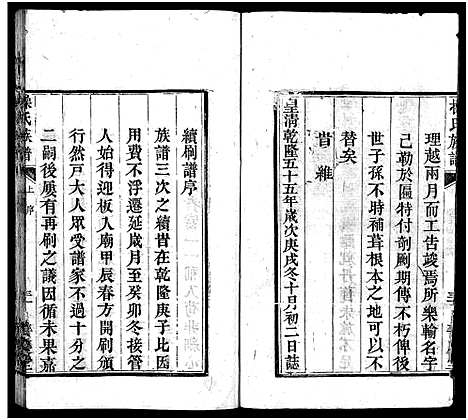 理越兩月而工告竣焉所樂輸名字
己勒於匾特付剞劂期傳不朽後
世子孫不特補葺根本之地已
替矣
皇清乾隆五十五年歲次庚戌冬十月初二日誌
續刷譜序
族譜三次之續昔在乾隆庚子比因
費用不浮遷延歲月至癸卯冬接管
人始得迎板入廟甲辰春方開刷頒
行然戶大人眾受譜家不過十分之
二嗣後屢有再刷之議因循未果嘉
氏族譜
上序